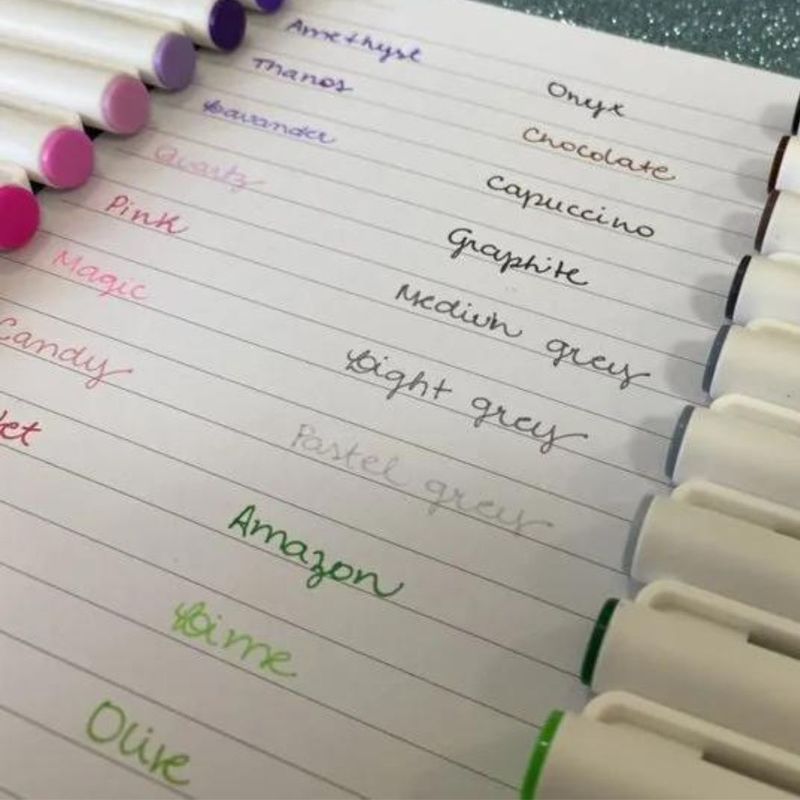 Amethyst
Thanos
Lavander
Quartz
Pink
Magic
Candy
Onyx
Chocolate
Capuccino
Graphite
Medium grey
Light grey
Pastel grey
Amazon
Lime
Olive